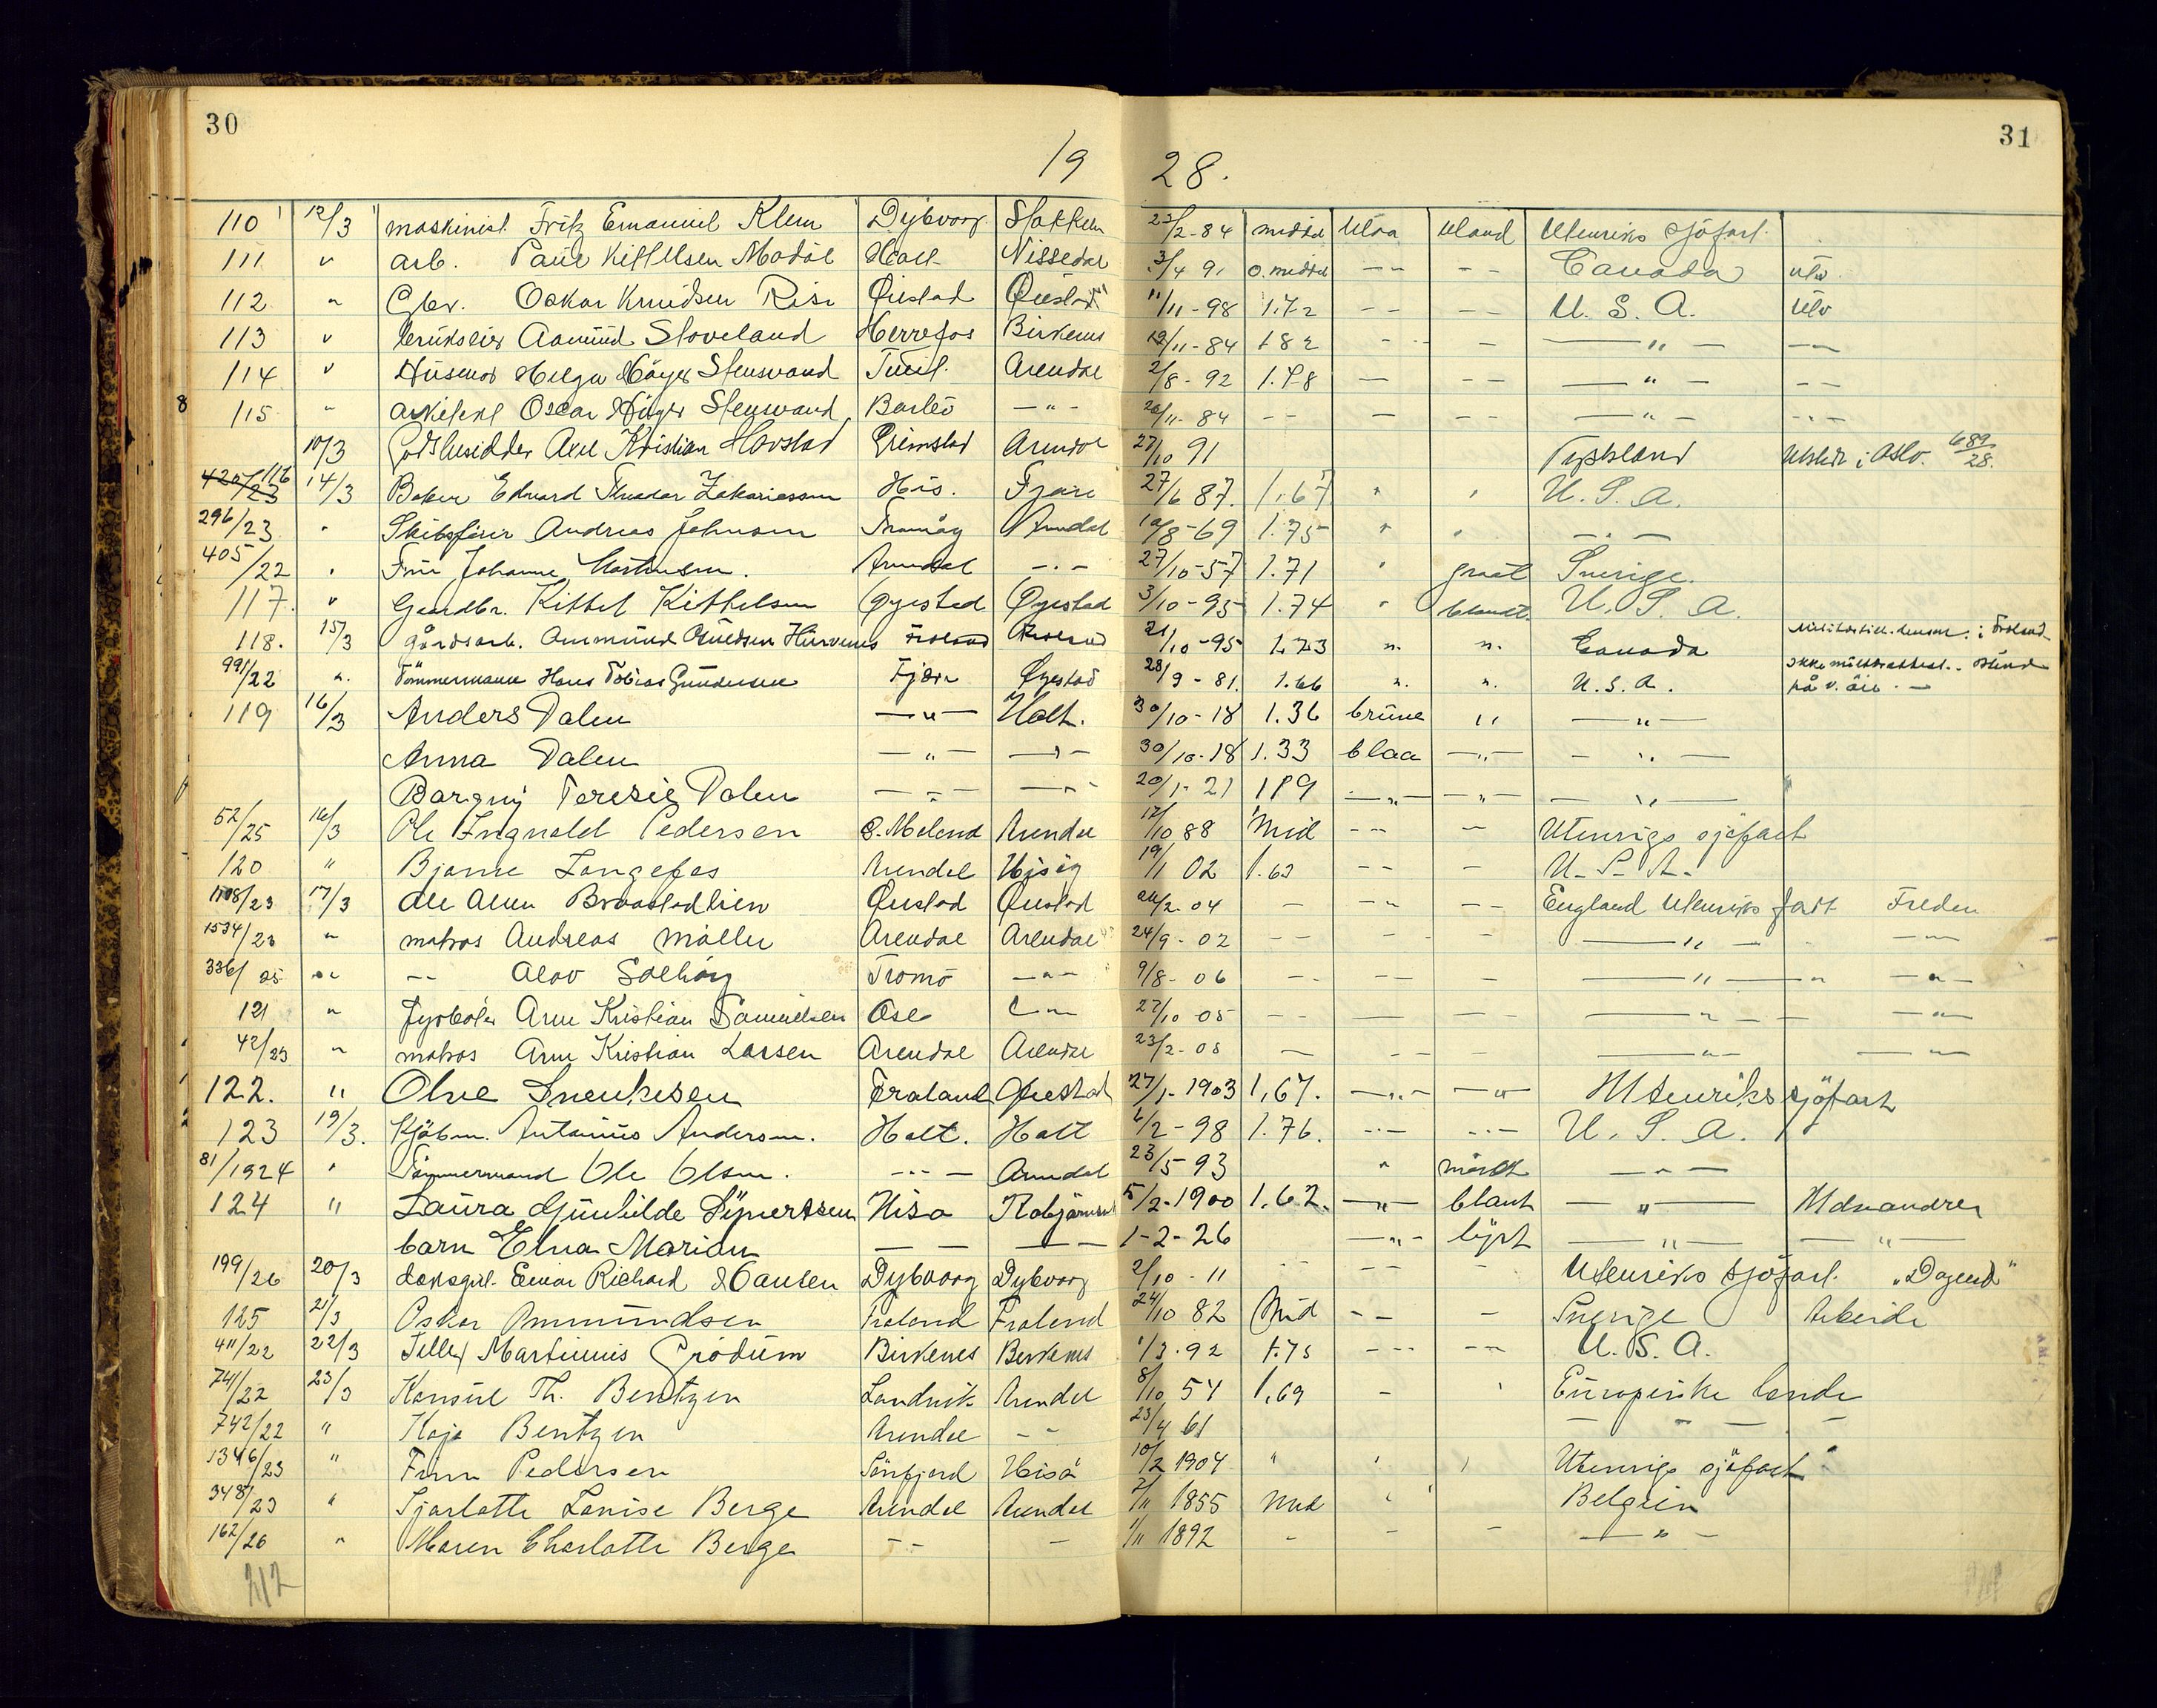 30
31
19 28.
110 12/3 maskinist Fritz Emanuel Klem Dybvaag Stokken 23/2-84 middel blaa bland Utenriks sjöfart.
111 " arb. Paul Kittilsen Modal Holt Nissedal 3/4 91 o. middel -- -- Canada utv.
112 " Gbr. Oskar Knudsen Rise Øiestad Øiestad 11/11-98 1.72 -- -- U. S. A. utv
113 " brukseier Aamund Stoveland Herrefos Birkenes 12/11-84 182 -- - -- " -- --
114 " Husmor Helga Höyer Stensvand Tveit. Arendal 2/8-92 1.78 - -- -- " - --
115 " arkitekt Oscar Höyer Stensvand Barbo -"- 20/11-84 -- - -- -- " - --
10/3 Godsbesidder Axel Kristian Hovstad Grimstad Arendal 27/10 91 Tyskland Utstedt i Oslo. 689/28.
420/23 116 14/3 Baker Edvard Theodor Zakariassen His. Fjære 27/6 87. 1.67 " " U. S. A.
296/23 " Skibsfører Andreas Johnsen Tromøy Arendal 10/8-69 1.75 " " - " -
405/22 " Fru Johanne Mortensen. Arendal -"- 27/10-57 1.71 " graat Sverige.
117. " Gaardbr. Kittel Kittelsen Øyestad Øyestad 3/10-95 1.74 " blandt. U. S. A.
118. 15/3 gårdsarb. Froland Froland 21/10-95 1.73 ". ". Canada i Froland
991/22 ". Tömmermann Hans Tobias Gundersen Fjære Øyestad 28/9-81. 1.66 ". ". U. S. A. på v. öie. -
119 16/3 Anders Dalen -"- Holt. 30/10-18 1.36 brune " -"-
Anna Dalen -"- -"- 30/10-18 1.33 blaa -"- - " -
Borgny Teresie Dalen -"- -"- 20/1-21 119 -"- -"- - " -
52/25 16/3 Ole Ingvald Pedersen Ø. Moland Arendal 17/10 88 Mid -- - Utenrigs sjøfart
120 " Bjarne Langefos Arendal Hisøy 19/1 02 1.63 -- - U. S. A.
1108/23 17/3 Ole Alen Braastadlien Øiestad Øiestad 24/2-04 - -- -- England Utenriks fart Freden
1534/23 " matros Andreas Møller Arendal Arendal 24/9-02 -- - - -- " - -"-
336/25 " -- Olav Solhøy Tromö -"- 9/8-06 -- -- - -- " - " -"-
121 " fyrböter Arne Kristian Samuelsen Ose -"- 27/10 05 -- - -- -- " -- -"-
42/23 " matros Arne Kristian Larsen Arendal Arendal 23/2-08 - -- -- -"- -"-
122. " Olve Froland Øiestad 27/1-1903 1,67. -"- -"- Utenriks sjöfart
123 19/3. Kjöbm. Antonius Andersen. Holt. Holt 6/2-98 1.76. -"- -"- U. S. A.
81/1924 " Tømmermand Ole Olsen. -"- Arendal 23/5-93 " mörkt -"-
124 " Laura Gunhilde Syvertsen Hisø 5/2-1900 1.62. -"- blant -"- Utvandrer
barn Elna Marion -- -- 1-2-26 -"- lyst -"- "
199/26 20/3 Einar Richard Hansen Dybvaag Dybvaag 2/10-11 -- -- - Utenriks sjöfart. "Dagend"
125 21/3 Oskar Ammundsen Froland Froland 24/10 82 Mid -- - Sverige Arbeide
411/22 22/3 Tellef Martinius Grödum Birkenes Birkenes 1/3-92 1.75 -- -- U. S. A.
741/22 23/3 Konsul Th. Bentzen Landvik Arendal 8/10 54 1,69 - " Europeiske lande
742/22 " Kaja Bentzen Arendal -- 23/4 61 - " - -
1346/23 " Finn Pedersen Sønfjord Hisö 10/2 1904 " " " Utenrigs sjøfart
348/23 " Sjarlotte Lovise Berge Arendal Arendal 7/11 1855 Mid " " Belgien
162/26 " Maren Charlotte Berge -- - 1/11 1892 - - - -"-
212